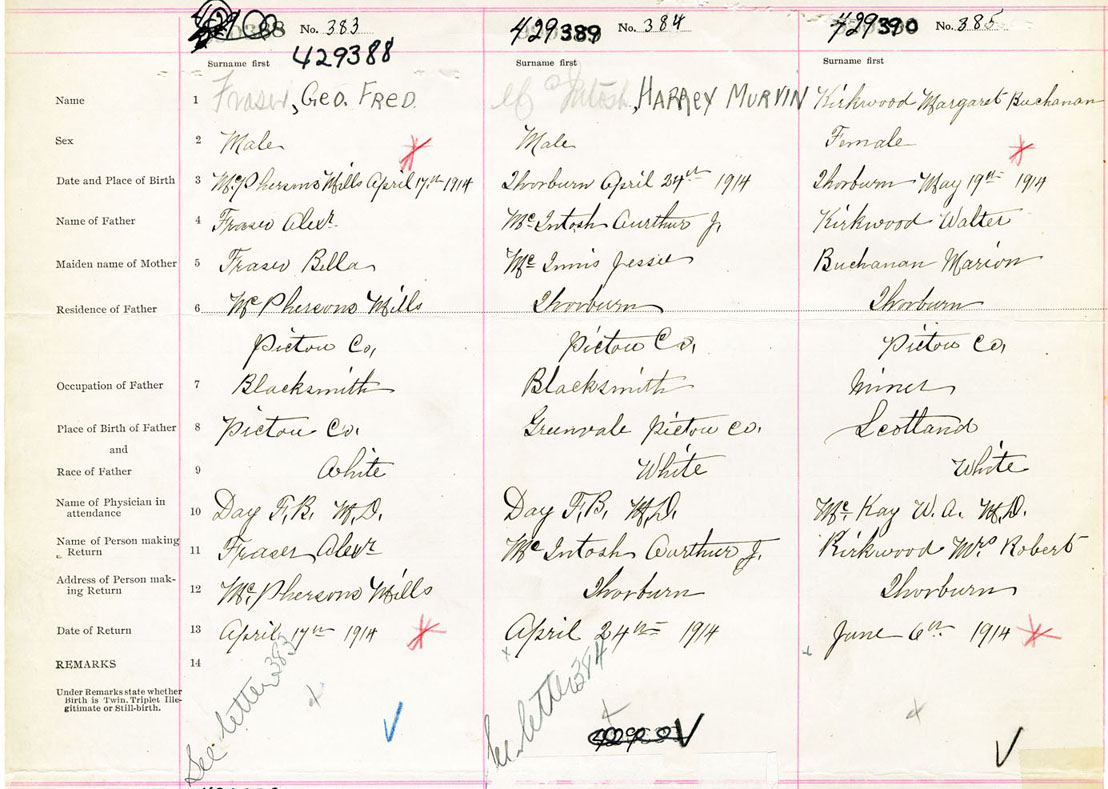 No. 383 429389 No. 384 429390 No. 385
429388
Surname first Surname first Surname first
Name 1 Fraser, GEO. FRED. McIntosh, HARREY MURVIN Kirkwood Margaret Buchanan
Sex 2 Male Male Female
Date and Place of Birth 3 McPhersons Mills April 17th 1914 Thorburn April 24th 1914 Thorburn May 19th 1914
Name of Father 4 Fraser Alexr. McIntosh Aurthur J. Kirkwood Walter
Maiden name of Mother 5 Fraser Bella McInnis Jessie Buchanan Marion
Residence of Father 6 McPhersons Mills Thorburn Thorburn
Pictou Co, Pictou Co, Pictou Co,
Occupation of Father 7 Blacksmith Blacksmith Miner
Place of Birth of Father 8 Pictou Co. Greenvale Pictou Co. Scotland
and
Race of Father 9 White White White
Name of Physician in
attendance 10 Day F.B. M.D. Day F.B. M.D. McKay W.A. M.D.
Name of Person making
Return 11 Fraser Alexr McIntosh Aurthur J. Kirkwood Mrs Robert
Address of Person mak-
ing Return 12 McPhersons Mills Thorburn Thorburn
Date of Return 13 April 17th 1914 April 24th 1914 June 6th 1914
REMARKS 14 See letter 383 See letter 384
Under Remarks state whether
Birth is Twin, Triplet Ille-
gitimate or Still-birth.